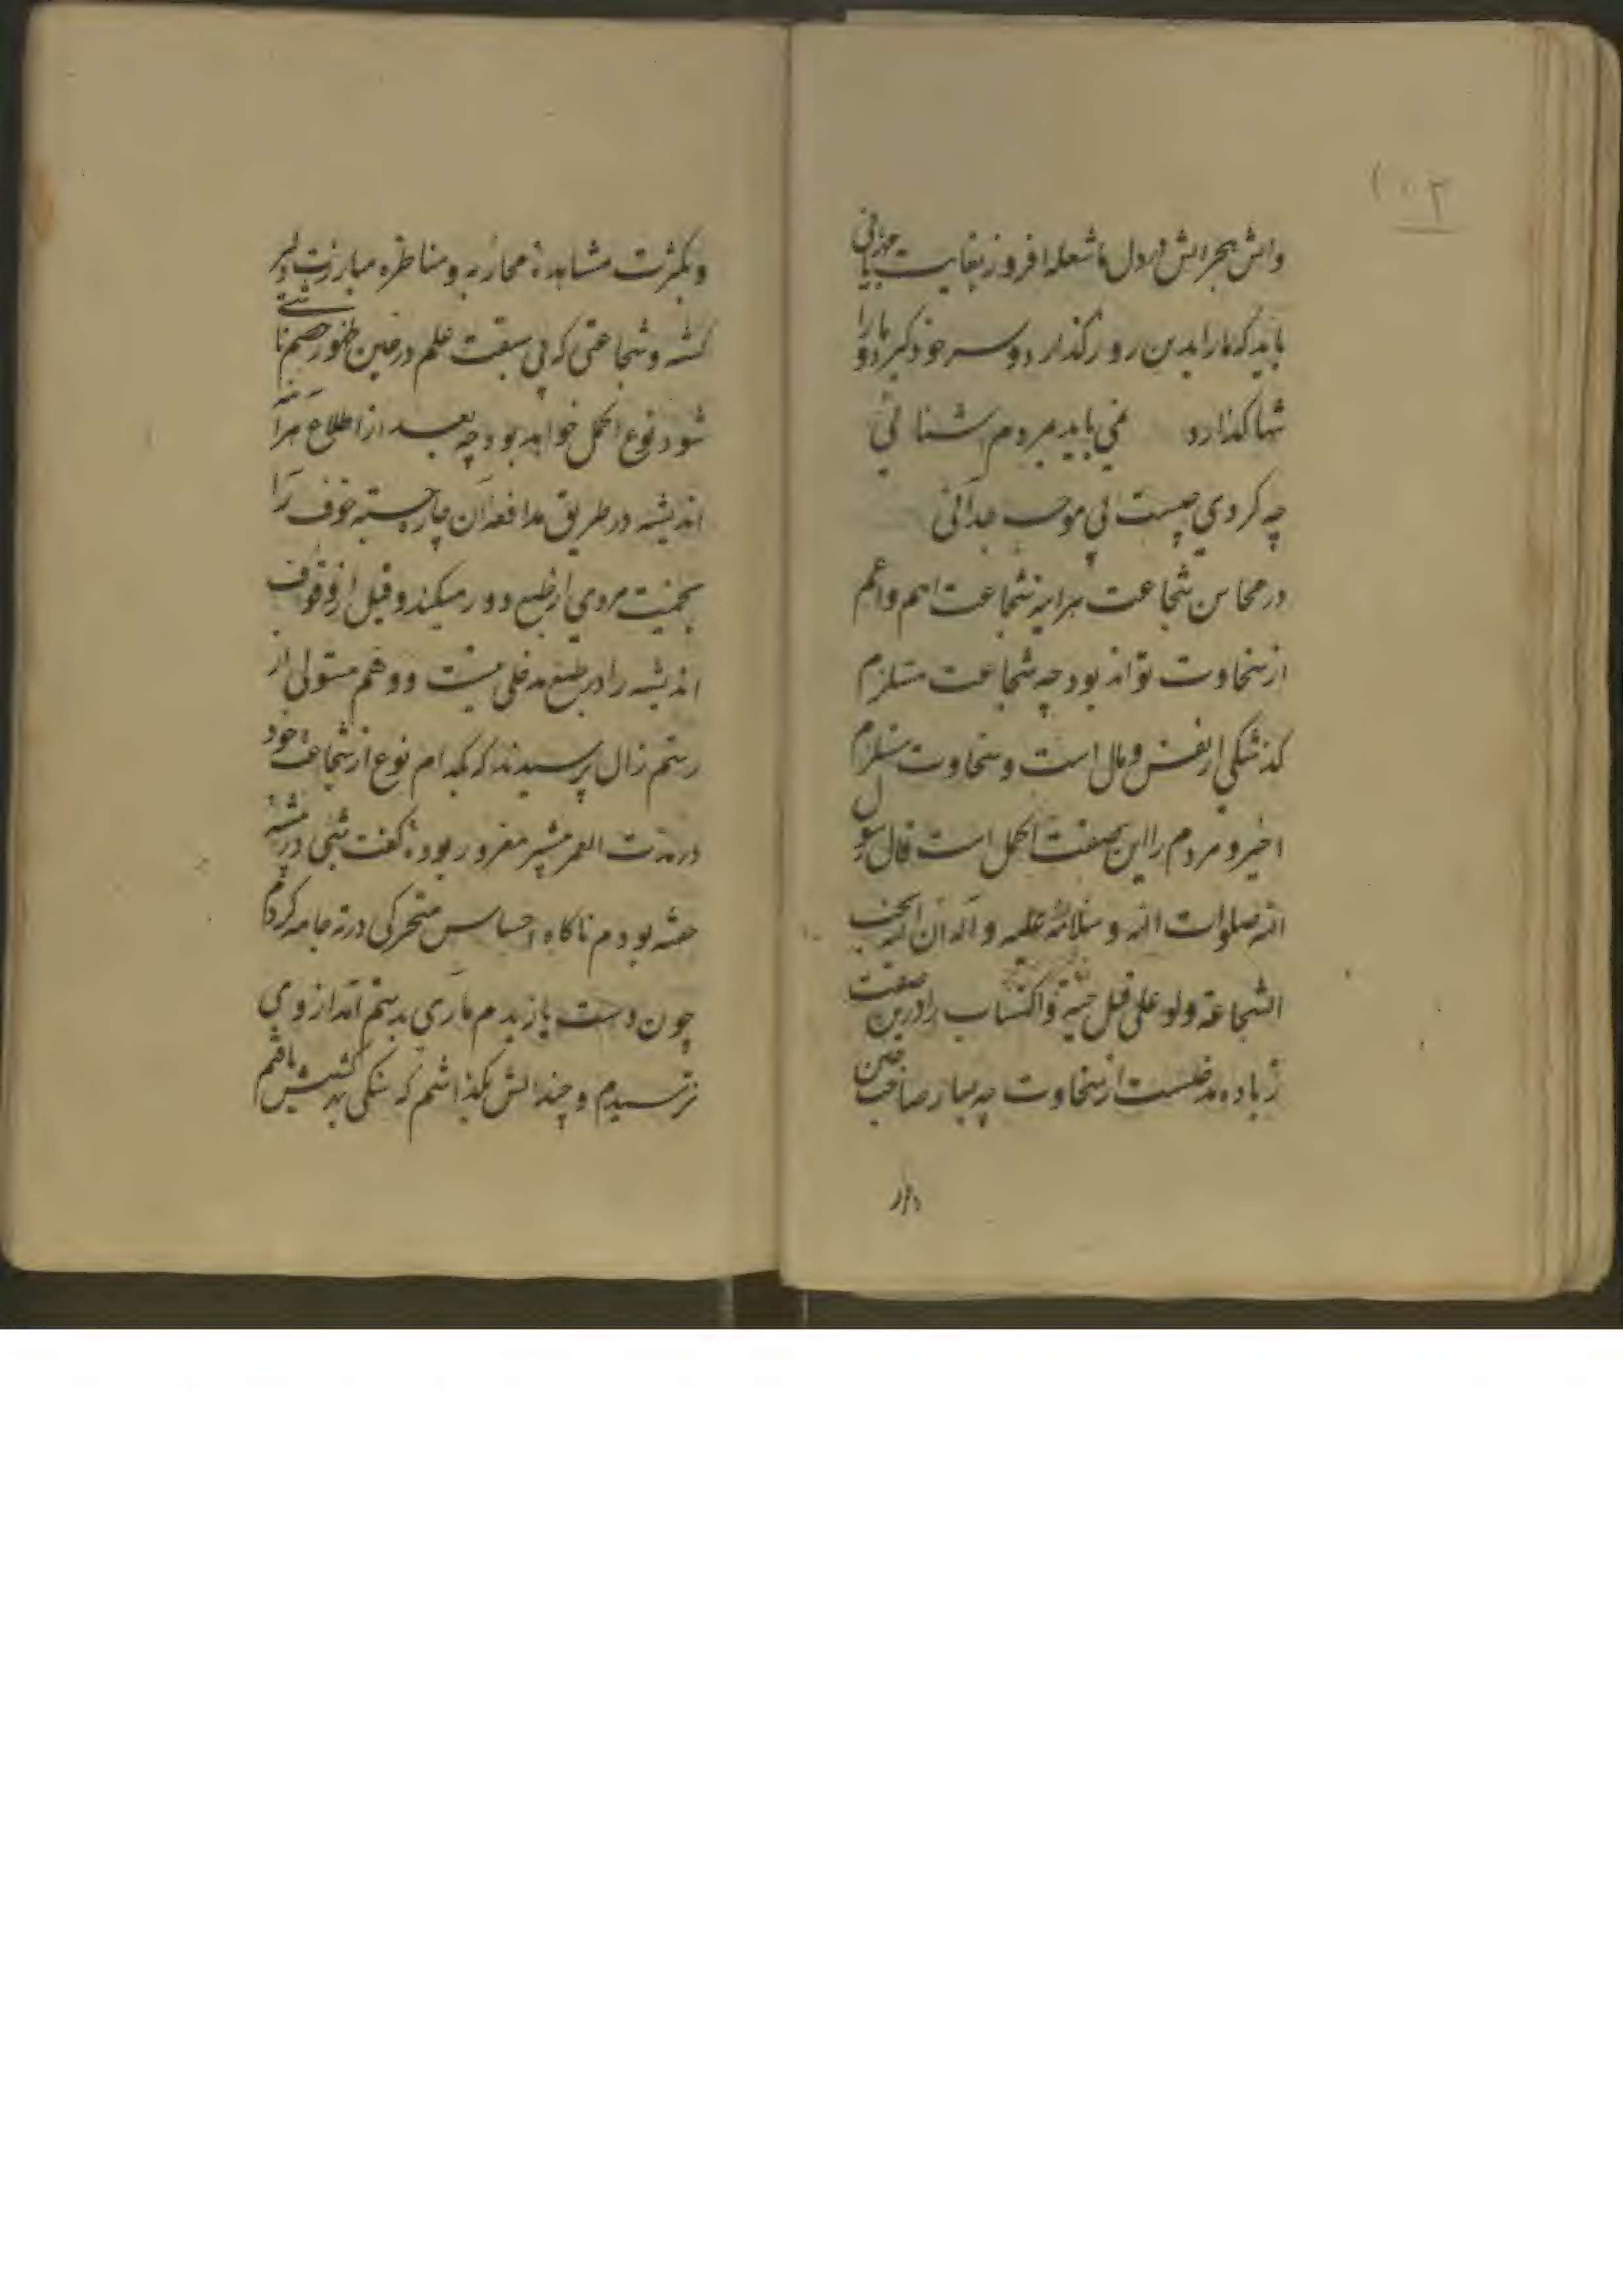 ۱۰۲
واتش هجرانش در دل ما شعله افروز بغایت مهربانی
باید که ما را بدین روز گذارد و سر خود گیرد و ما را
تنها گذارد نمی باید بمردم آشنائی
چه کردی چیست بی موجب جدائی
در محاسن شجاعت هرآینه شجاعت اهم و اعم
از سخاوت تواند بود چه شجاعت مستلزم
گذشتگی از نفس و مال است و سخاوت مستلزم
اخیر و مردم را این صفت اکمل است قال رسول
الله صلوات الله و سلامه علیه و آله ان الله یحب
الشجاعة ولو علی قتل حیة و اکتساب را درین صفت
زیاده مدخلست از سخاوت چه بسیار صاحب
وبکثرت مشاهده محاربه و مناظره مبارزت دلیر
گشته و شجاعتی که بی سبقت علم در حین ظهور خصم ناشی
شود نوع اکمل خواهد بود چه بعد از اطلاع هرآینه
اندیشه در طریق مدافعه آن چاره جسته خوف را
بحمیت مردی از طبع دور میکند و قبل از وقوف
اندیشه را در طبع مدخلی نیست و وهم مستولی از
رستم زال پرسیدند که بکدام نوع از شجاعت خود
در مدت العمر بیشتر مغرور بوده گفت شبی در بیشه
خفته بودم ناگاه احساس متحرکی در ته جامه کردم
چون دست یازیدم ماری بدستم آمد از وی
نترسیدم و چندانش بگذاشتم که سنگی بدست یافتم